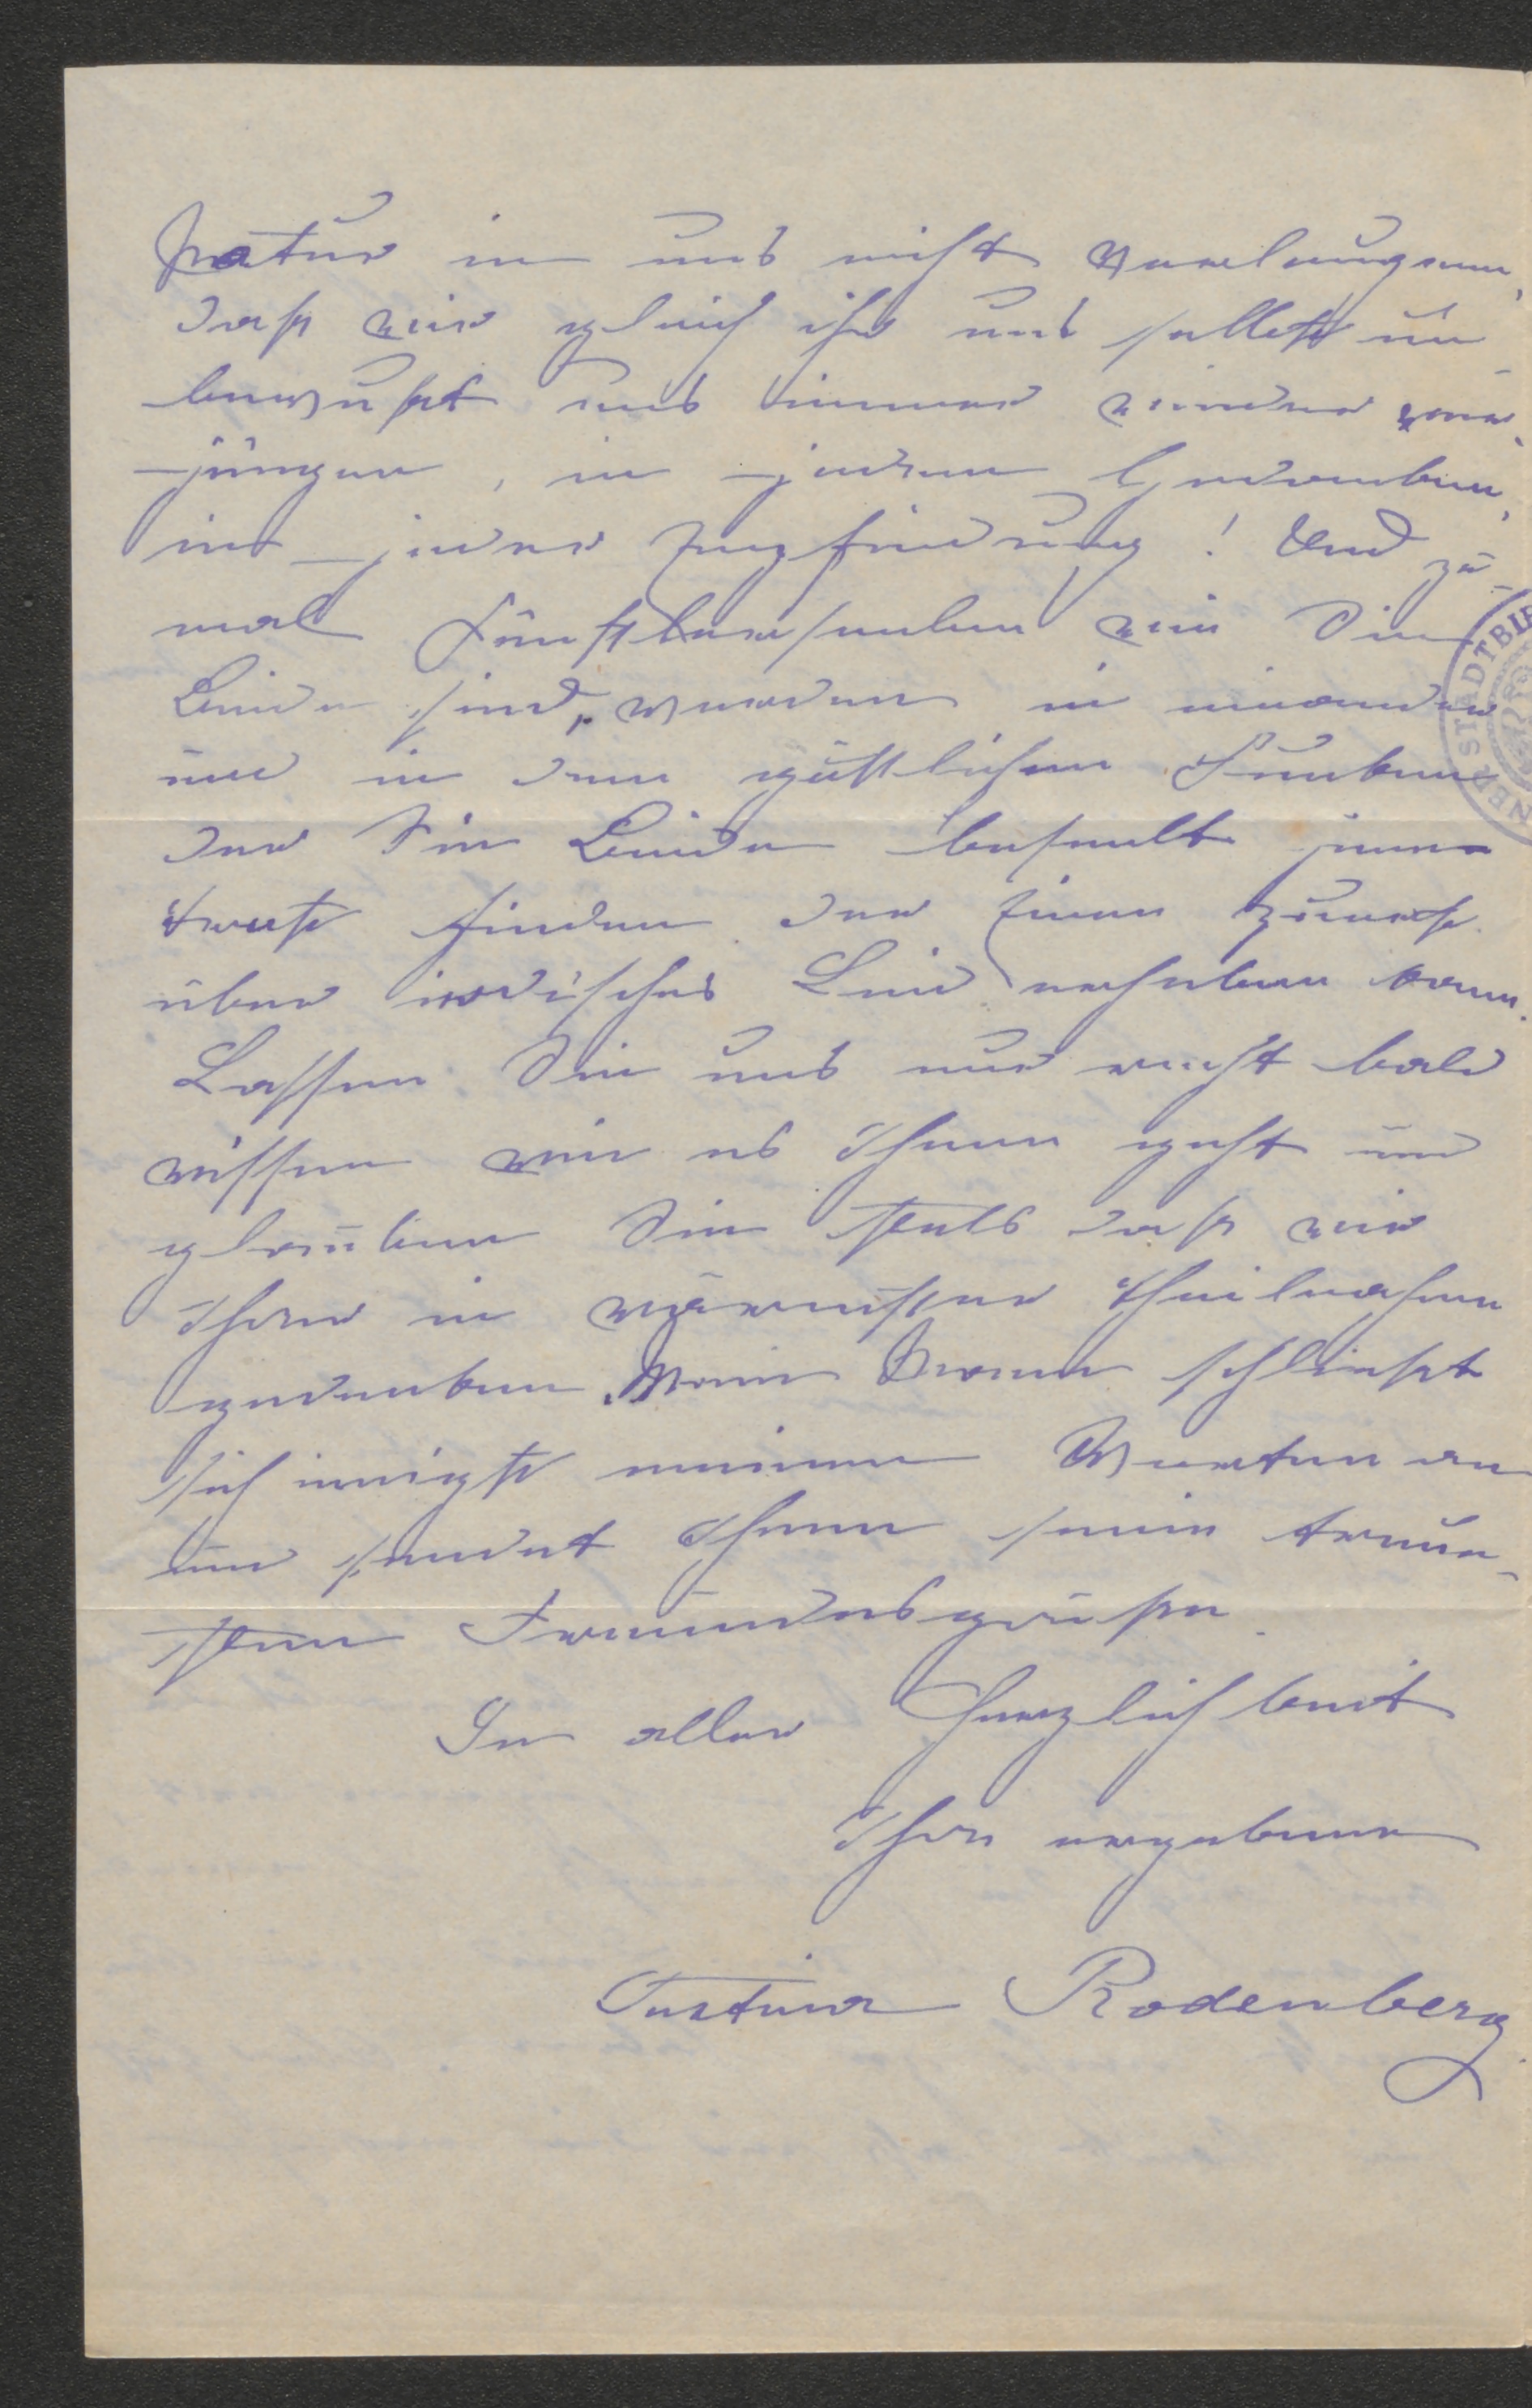 Natur in uns nicht verleugnen,
daß wir gleich ihr uns selbst un-
bewußt uns immer wieder ver-
jüngen, in jedem Gedanken,
in jeder Empfindung! Und zu-
mal Künstlerseelen wie Sie
Beide sind, werden in einander
und in dem göttlichen Funken
der Sie Beide beseelt jenen
Trost finden der Einen zumeist
über irdisches Leid erheben kann.
Lassen Sie uns nur recht bald
wissen wie es Ihnen geht und
glauben Sie stets daß wir
Ihrer in wärmster Theilnahme
gedenken. Mein Mann schließt
sich innigst meinen Worten an
und sendet Ihnen seine treue-
sten Freundesgrüße.
In aller Herzlichkeit
Ihre ergebene
Justina Rodenberg
NER STADTBI